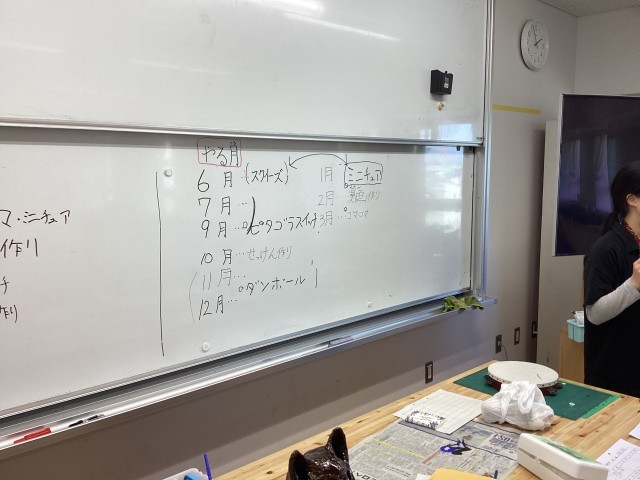 マ・ミニチュア
作り
チ
作り
やる月
6月…(スクイーズ)
7月…
9月…ピタゴラスイッチ
10月…せっけん作り
11月…
12月…ダンボール
1月 ミニチュア
2月
3月…コマコマ